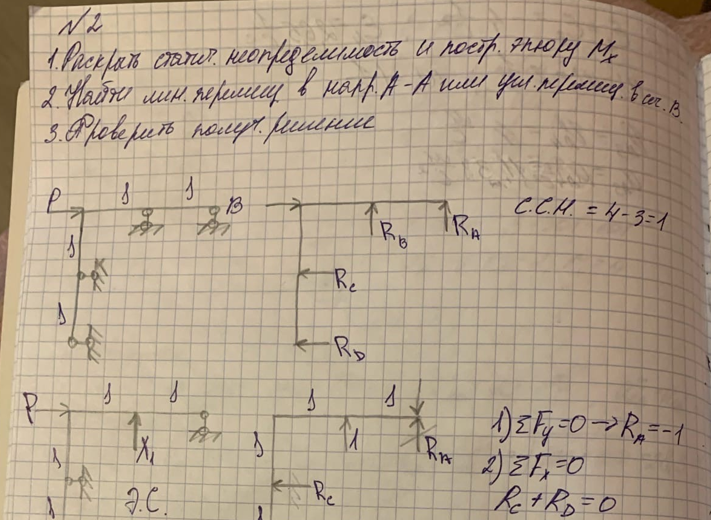 №2
1. Раскрыть статич. неопределимость и постр. эпюру Mx
2. Найти лин. перемещ в напр. A-A или угл. перемещ. в сеч. B.
3. Проверить получ. решение
P l l B
l
l
R_B R_A
R_C
R_D
С.С.Н. = 4-3=1
P l l
X_1
l
l
Э.С.
l l
l
1
R_A
R_C
l
1) ΣFy=0 → R_A=-1
2) ΣFx=0
R_C + R_D = 0